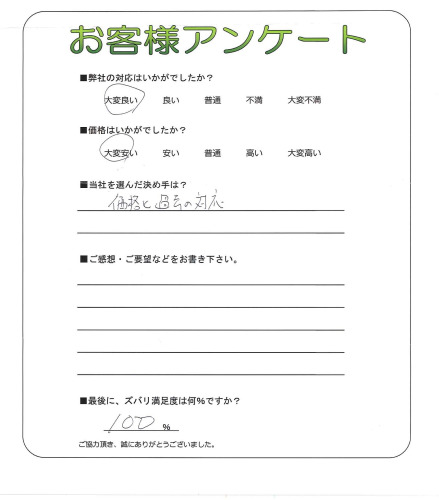 お客様アンケート
■弊社の対応はいかがでしたか？
大変良い 良い 普通 不満 大変不満
■価格はいかがでしたか？
大変安い 安い 普通 高い 大変高い
■当社を選んだ決め手は？
価格と過去の対応
■ご感想・ご要望などをお書き下さい。
■最後に、ズバリ満足度は何％ですか？
100 ％
ご協力頂き、誠にありがとうございました。